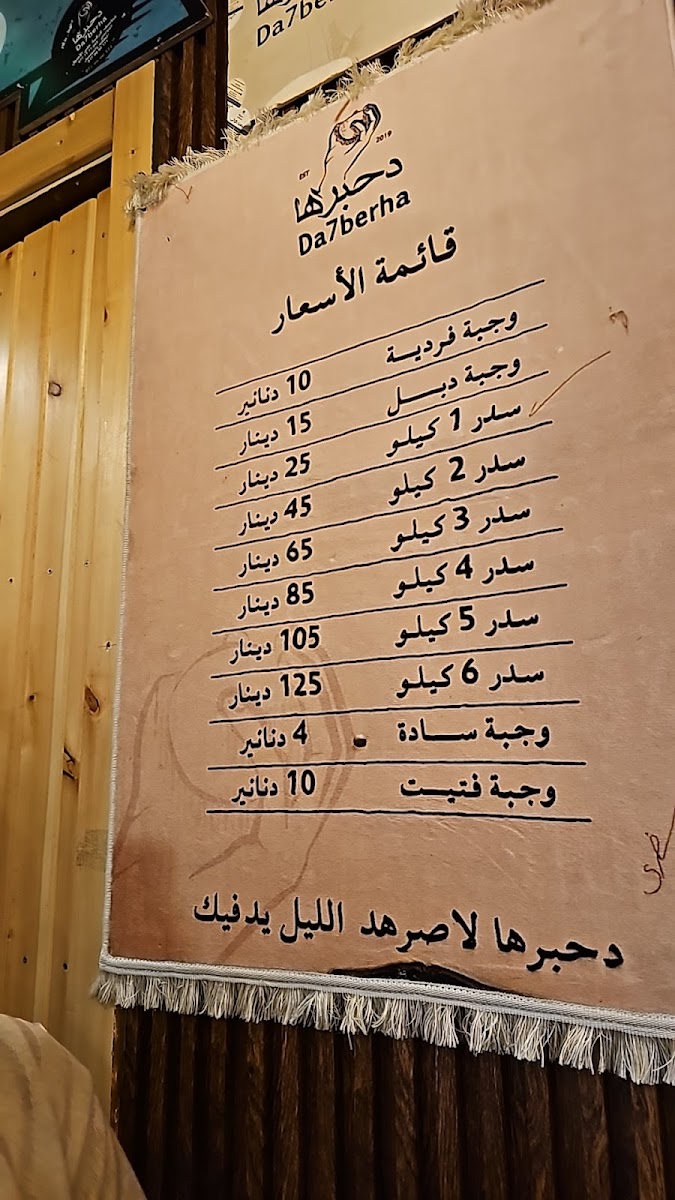 دحبرها
Da7berha
Da7be
EST 2019
دحبرها
Da7berha
قائمة الأسعار
وجبة فردية 10 دنانير
وجبة دبل 15 دينار
سدر 1 كيلو 25 دينار
سدر 2 كيلو 45 دينار
سدر 3 كيلو 65 دينار
سدر 4 كيلو 85 دينار
سدر 5 كيلو 105 دينار
سدر 6 كيلو 125 دينار
وجبة سادة 4 دنانير
وجبة فتيت 10 دنانير
دحبرها لاصرهد الليل يدفيك